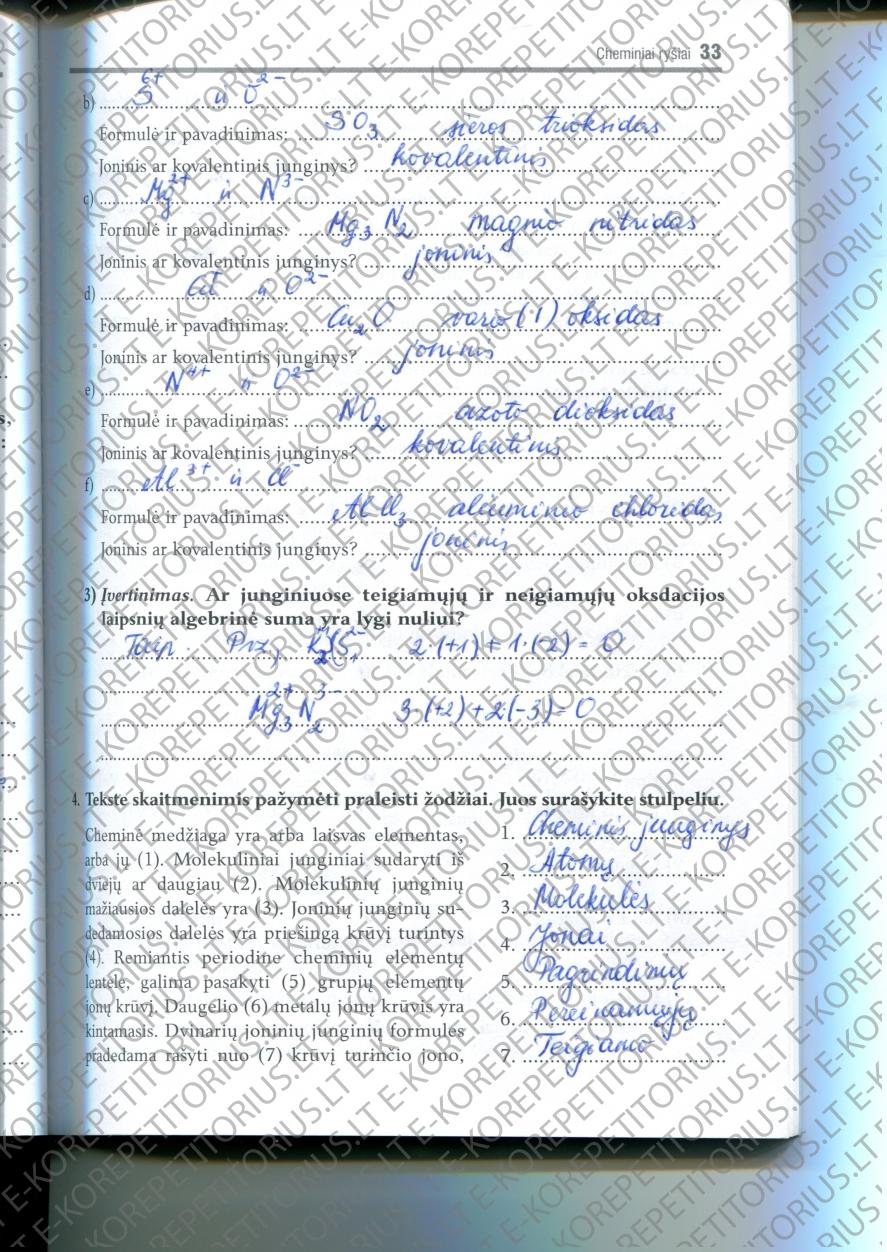 Cheminiai ryšiai 33
b) S⁶⁺ ir O²⁻
Formulė ir pavadinimas: SO₃ sieros trioksidas
Joninis ar kovalentinis junginys? kovalentinis
c) Mg²⁺ ir N³⁻
Formulė ir pavadinimas: Mg₃N₂ magnio nitridas
Joninis ar kovalentinis junginys? joninis
d) ir O²⁻
Formulė ir pavadinimas: Cu₂O vario (I) oksidas
Joninis ar kovalentinis junginys? joninis
e) N⁴⁺ ir O²⁻
Formulė ir pavadinimas: NO₂ azoto dioksidas
Joninis ar kovalentinis junginys? kovalentinis
f) Al³⁺ ir Cl⁻
Formulė ir pavadinimas: AlCl₃ aliuminio chloridas
Joninis ar kovalentinis junginys? joninis
3) Įvertinimas. Ar junginiuose teigiamųjų ir neigiamųjų oksdacijos
laipsnių algebrinė suma yra lygi nuliui?
Taip. Pvz, 2·(+1) + 1·(-2) = 0
Mg₃²⁺N₂³⁻ 3·(+2) + 2(-3) = 0
4. Tekste skaitmenimis pažymėti praleisti žodžiai. Juos surašykite stulpeliu.
Cheminė medžiaga yra arba laisvas elementas,
arba jų (1). Molekuliniai junginiai sudaryti iš
dviejų ar daugiau (2). Molekulinių junginių
mažiausios dalelės yra (3). Joninių junginių su-
dedamosios dalelės yra priešingą krūvį turintys
(4). Remiantis periodine cheminių elementų
lentele, galima pasakyti (5) grupių elementų
jonų krūvį. Daugelio (6) metalų jonų krūvis yra
kintamasis. Dvinarių joninių junginių formules
pradedama rašyti nuo (7) krūvį turinčio jono,
1. Cheminis junginys
2. Atomų
3. Molekulės
4. Jonai
5. Pagrindinių
6. Pereinamųjų
7. Teigiamo
E-KOREPETITORIUS.LT